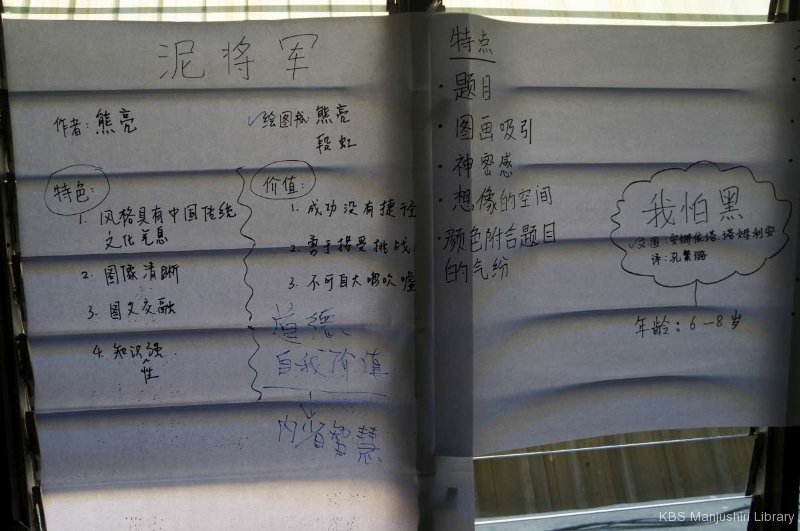 泥将军
作者: 熊亮
绘图者: 熊亮
段虹
特色:
1. 风格具有中国传统
文化气息
2. 图像清晰
3. 图文交融
4. 知识强
性
价值:
1. 成功没有捷径
2. 勇于接受挑战
3. 不可自大
道德
自我价值
内省智慧
特点
· 题目
· 图画吸引
· 神密感
· 想像的空间
· 颜色附合题目
的气纷
我怕黑
文图: 安娜依塔.塔姆利安
译: 孔繁璐
年龄: 6-8岁
KBS Manjushiri Library